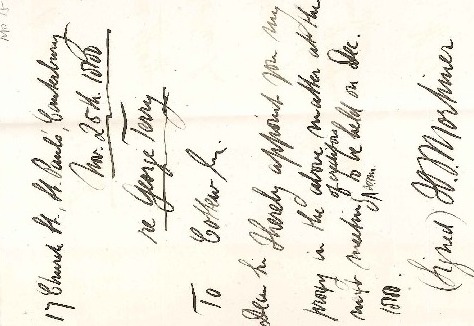 17 Church St, St. Pauls, Canterbury
Nov. 25th. 1880
re George Terry
To
Dear Sir I hereby appoint you my
proxy in the above matter at the
next meeting of creditors to be held on Dec.
1880.
(Signed) Mortimer